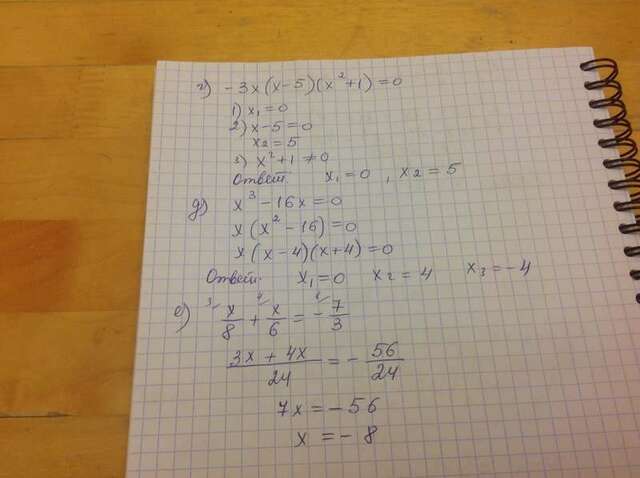 г) -3x(x-5)(x²+1)=0
1) x₁=0
2) x-5=0
x₂=5
3) x²+1≠0
Ответ: x₁=0, x₂=5
д) x³-16x=0
x(x²-16)=0
x(x-4)(x+4)=0
Ответ: x₁=0 x₂=4 x₃=-4
е) ³⁄ x/8 + ⁴⁄ x/6 = - ⁸⁄ 7/3
(3x+4x)/24 = -56/24
7x=-56
x=-8